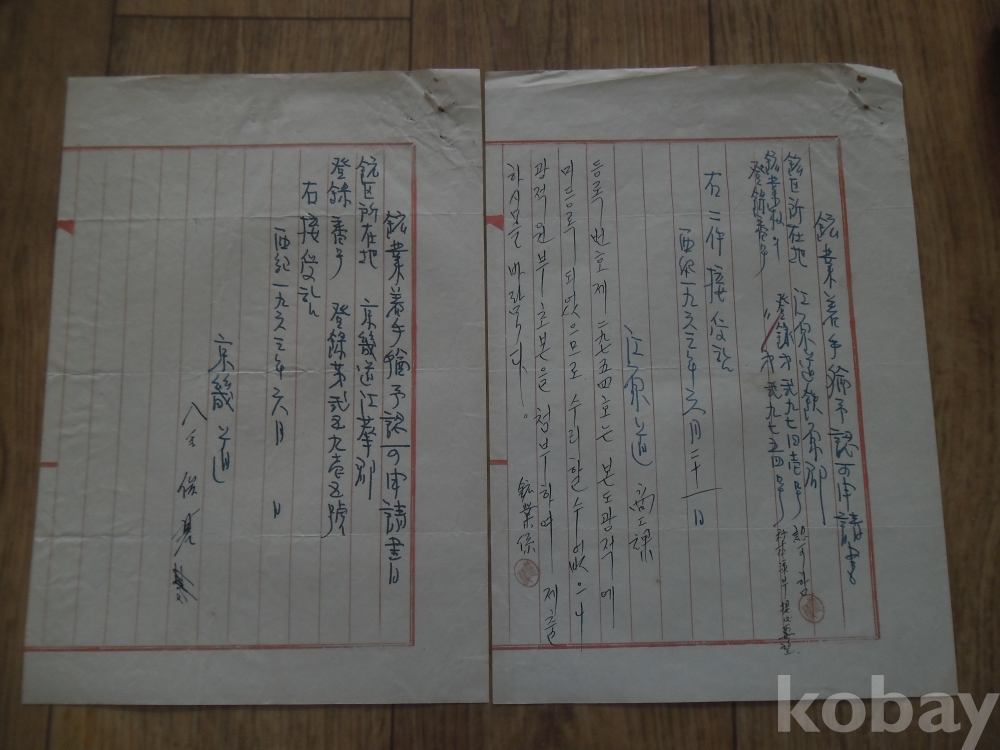 鉱業着手猶予認可申請書
鉱区所在地 江原道鉄原郡
鉱業权의
登録番号 登録才弐九七四壱号
〃 才弐九七五四号
右二件接受証
西紀一九六三年六月二十一日
江原道 商工課
등록 번호 제二九七五四호는 본도광적에
미등록 되었으므로 수리할수 없으니
광적 원부 초본을 첨부하여 제출
하시옵기 바랍니다。
鉱業係
鉱業着手猶予認可申請書
鉱区所在地 京畿道江華郡
登録番号 登録第弐五九壱五號
右接受証
西紀一九六三年六月 日
京畿道
kobay